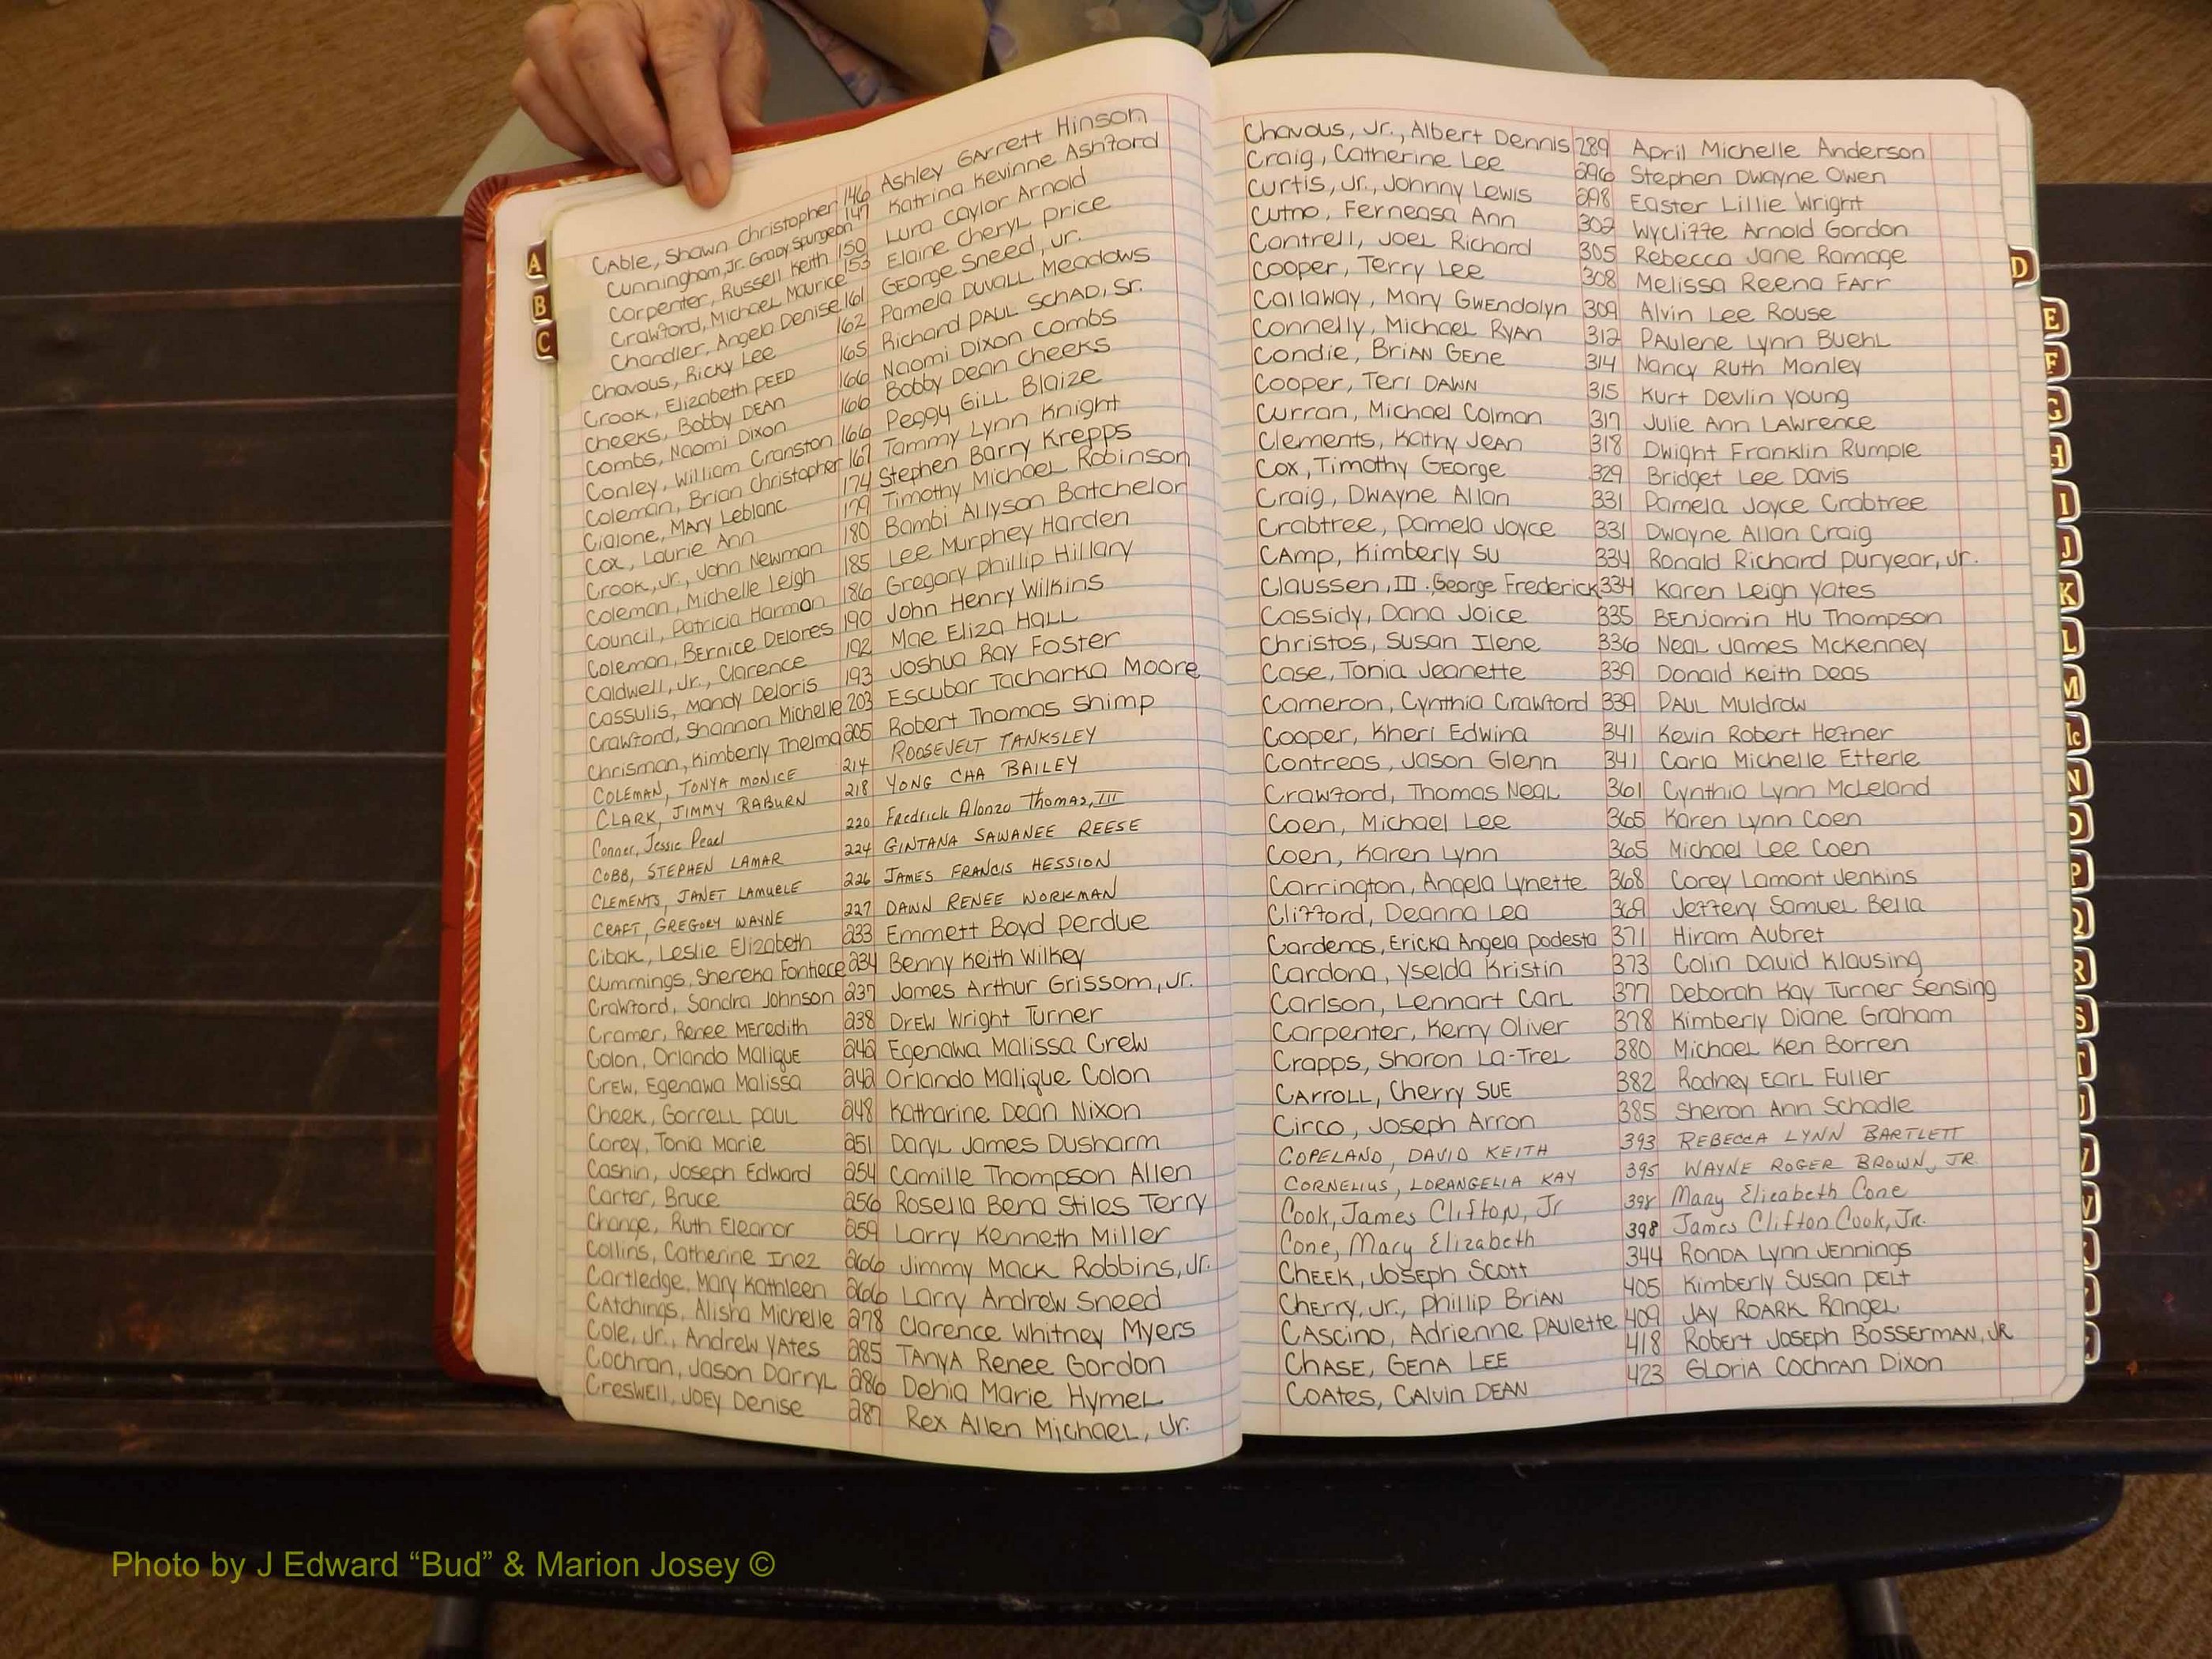 CAble, Shawn Christopher 146 Ashley GArrett Hinson
Cunningham, Jr. Grady Spurgeon 147 Katrina Kevinne Ashford
Carpenter, Russell Keith 150 Lura Caylor Arnold
Crawford, Michael Maurice 153 Elaine Cheryl Price
Chandler, Angela Denise 161 George Sneed, Jr.
Chavous, Ricky Lee 162 Pamela Duvall Meadows
Crook, Elizabeth PEED 165 Richard PAUL SCHAD, Sr.
Cheeks, Bobby DEAN 166 Naomi Dixon Combs
Combs, Naomi Dixon 166 Bobby Dean Cheeks
Conley, William Cranston 166 Peggy Gill Blaize
Coleman, Brian Christopher 167 Tammy Lynn Knight
Cialone, Mary Leblanc 174 Stephen Barry Krepps
Cox, Laurie Ann 179 Timothy Michael Robinson
Crook, Jr., John Newman 180 Bambi Allyson Batchelor
Coleman, Michelle Leigh 185 Lee Murphey Harden
Council, Patricia Harmon 186 Gregory Phillip Hillary
Coleman, Bernice Delores 190 John Henry Wilkins
Caldwell, Jr., Clarence 192 Mae Eliza Hall
Cassulis, Mandy Deloris 193 Joshua Ray Foster
Crawford, Shannon Michelle 203 Escubar Tacharka Moore
Chrisman, Kimberly Thelma 205 Robert Thomas Shimp
COLEMAN, TONYA MONICE 214 ROOSEVELT TANKSLEY
CLARK, JIMMY RABURN 218 YONG CHA BAILEY
Conner, Jessie Pearl 220 Fredrick Alonzo Thomas, III
COBB, STEPHEN LAMAR 224 GINTANA SAWANEE REESE
CLEMENTS, JANET LAMUELE 226 JAMES FRANCIS HESSION
CRAFT, GREGORY WAYNE 227 DAWN RENEE WORKMAN
Cibak, Leslie Elizabeth 233 Emmett Boyd Perdue
Cummings, Shereka Fontiece 234 Benny Keith Wilkey
Crawford, Sandra Johnson 237 James Arthur Grissom, Jr.
Cramer, Renee Meredith 238 Drew Wright Turner
Colon, Orlando Malique 242 Egenawa Malissa Crew
Crew, Egenawa Malissa 242 Orlando Malique Colon
Cheek, Gorrell Paul 248 Katharine Dean Nixon
Corey, Tonia Marie 251 Daryl James Dusharm
Cashin, Joseph Edward 254 Camille Thompson Allen
Carter, Bruce 256 Rosella Bena Stiles Terry
Change, Ruth Eleanor 259 Larry Kenneth Miller
Collins, Catherine Inez 266 Jimmy Mack Robbins, Jr.
Cartledge, Mary Kathleen 266 Larry Andrew Sneed
CAtchings, Alisha Michelle 278 Clarence Whitney Myers
Cole, Jr., Andrew YAtes 285 TANYA Renee Gordon
Cochran, Jason Darryl 286 Dehia Marie Hymel
Creswell, Joey Denise 287 Rex Allen Michael, Jr.
Chavous, Jr., Albert Dennis 289 April Michelle Anderson
Craig, Catherine Lee 296 Stephen Dwayne Owen
Curtis, Jr., Johnny Lewis 298 Easter Lillie Wright
Cutno, Ferneasa Ann 302 Wycliffe Arnold Gordon
Cantrell, Joel Richard 305 Rebecca Jane Ramage
Cooper, Terry Lee 308 Melissa Reena FArr
Callaway, Mary Gwendolyn 309 Alvin Lee Rouse
Connelly, Michael Ryan 312 PAulene Lynn Buehl
Condie, BriAN Gene 314 Nancy Ruth Manley
Cooper, Teri DAWN 315 Kurt Devlin Young
Curran, Michael Colman 317 Julie Ann LAwrence
Clements, Kathy JeAN 318 Dwight Franklin Rumple
Cox, Timothy George 329 Bridget Lee Davis
Craig, DWAyne Allan 331 Pamela Joyce Crabtree
Crabtree, Pamela Joyce 331 Dwayne Allan Craig
CAmp, Kimberly Su 334 Ronald Richard Duryear, Jr.
Claussen, III., George Frederick 334 Karen Leigh Yates
Cassidy, Dana Joice 335 Benjamin Hu Thompson
Christos, Susan Ilene 336 Neal James McKenney
Case, Tonia Jeanette 339 Donald Keith Deas
Cameron, Cynthia Crawford 339 PAUL Muldrow
Cooper, Kheri Edwina 341 Kevin Robert Hefner
Contreas, Jason Glenn 341 Carla Michelle Etterle
Crawford, Thomas Neal 361 Cynthia Lynn McLeland
Coen, Michael Lee 365 Karen Lynn Coen
Coen, Karen Lynn 365 Michael Lee Coen
Carrington, Angela Lynette 368 Corey Lamont Jenkins
Clifford, Deanna Lea 369 Jeffery Samuel Bella
Cardenas, Ericka Angela Podesta 371 Hiram Aubret
Cardona, Yselda Kristin 373 Colin David Klausing
Carlson, Lennart Carl 377 Deborah Kay Turner Sensing
Carpenter, Kerry Oliver 378 Kimberly Diane Graham
Crapps, Sharon La-Trel 380 Michael Ken Borren
CARROLL, Cherry SUE 382 Rodney Earl Fuller
Circo, Joseph Arron 385 Sheron Ann Schadle
COPELAND, DAVID KEITH 393 REBECCA LYNN BARTLETT
CORNELIUS, LORANGELIA KAY 395 WAYNE ROGER BROWN, JR.
Cook, James Clifton, Jr 398 Mary Elizabeth Cone
Cone, Mary Elizabeth 398 James Clifton Cook, Jr.
CHEEK, Joseph Scott 344 RONDA Lynn Jennings
Cherry, Jr., Phillip BriAN 405 Kimberly Susan PELT
CAscino, Adrienne PAulette 409 JAY ROARK Rangel
CHASE, GENA LEE 418 Robert Joseph BOSSERMAN, JR
COAtes, CAlvin DEAN 423 GLoriA Cochran Dixon
A
B
C
D
E
F
G
H
I
J
K
L
M
Mc
N
O
P
Q
R
S
T
Photo by J Edward “Bud” & Marion Josey ©